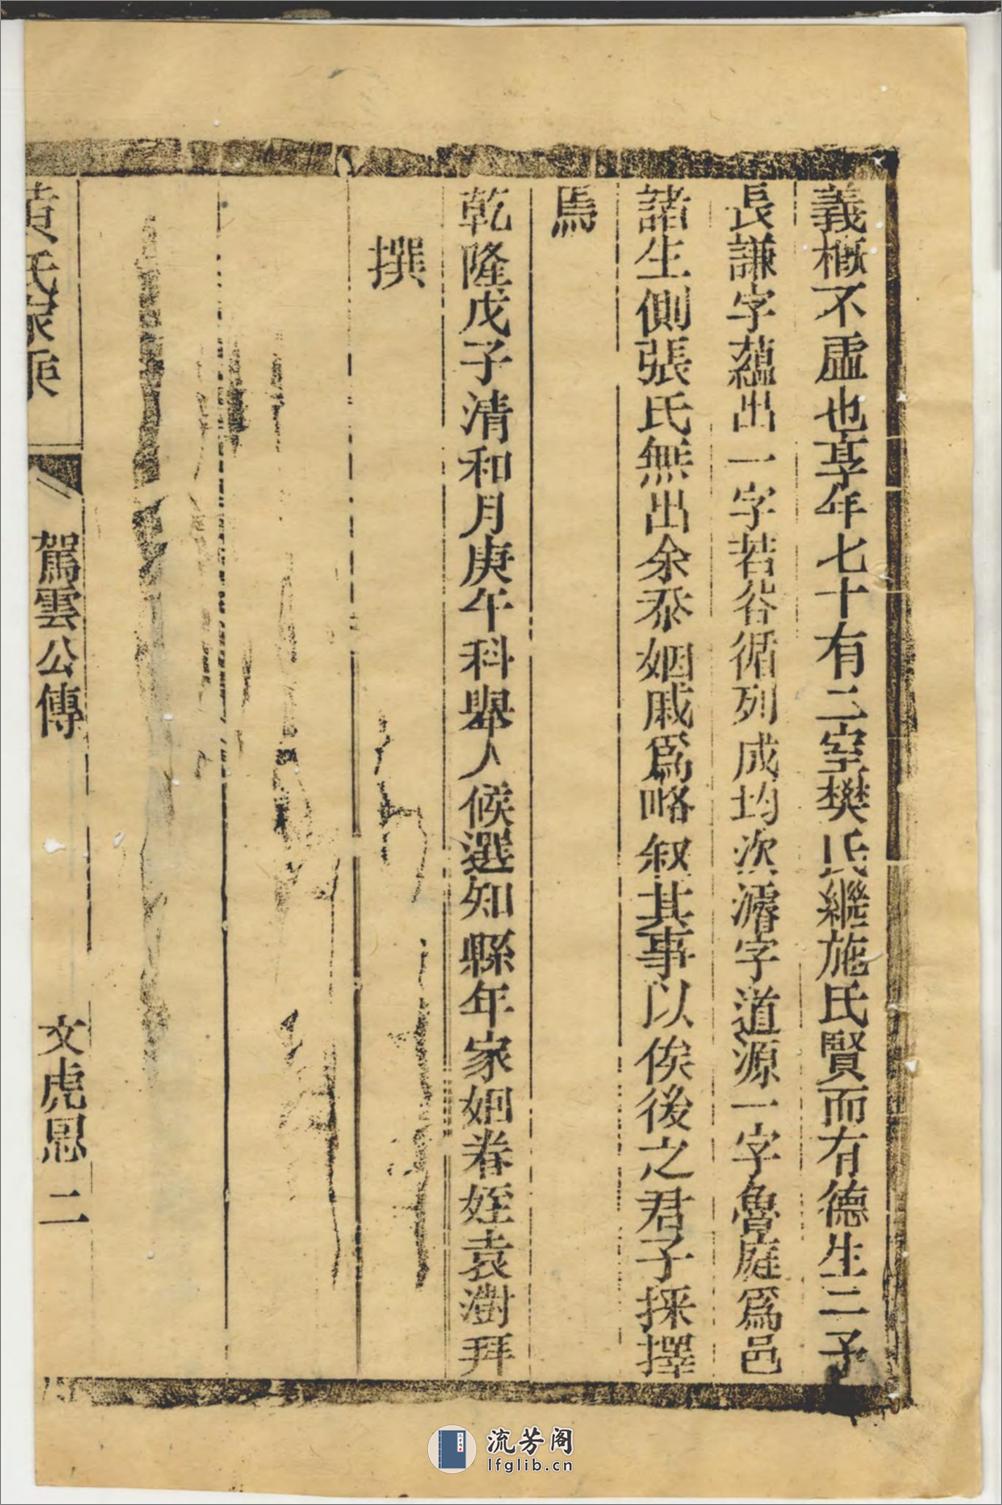 義概不虛也享年七十有二室樊氏繼施氏賢而有德生二子
長謙字蘊出一字若谷循列成均次濬字道源一字魯庭爲邑
諸生側張氏無出余忝姻戚爲略叙其事以俟後之君子採擇
焉
乾隆戊子清和月庚午科舉人候選知縣年家姻眷姪袁澍拜
撰
黃氏家乘
駕雲公傳
文虎恩 二
流芳阁
lfglib.cn